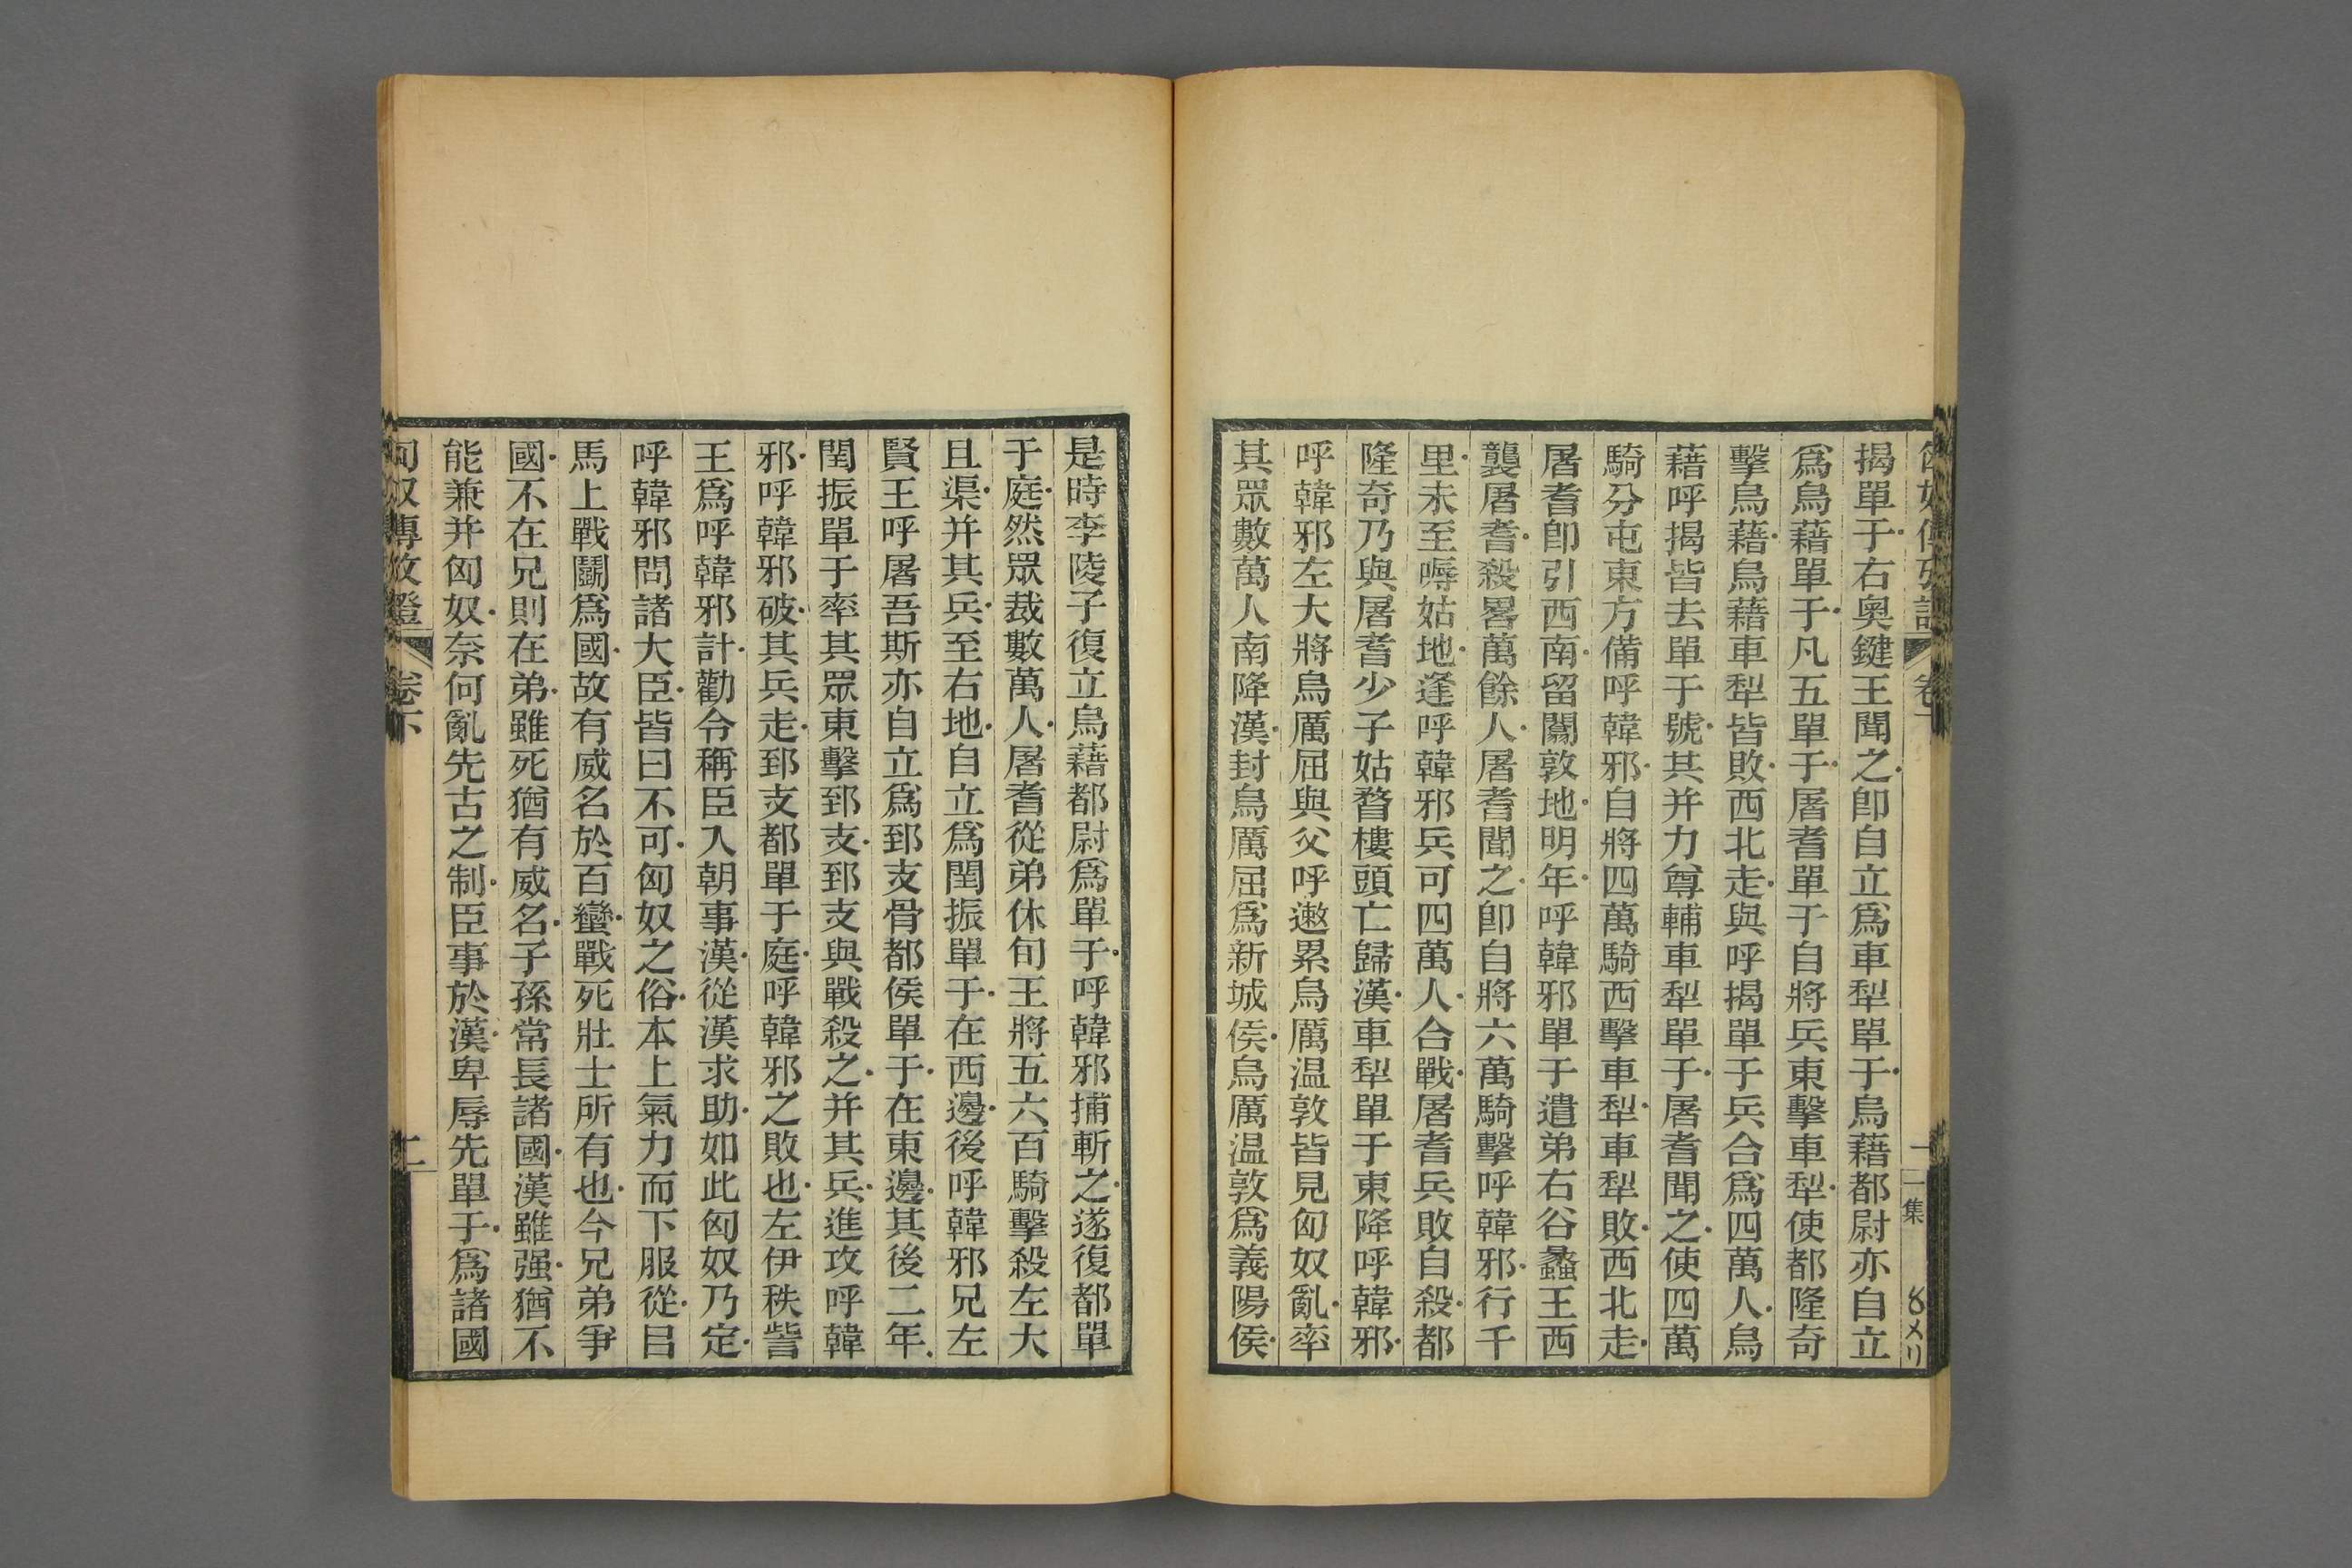 揭單于右奧鍵王聞之卽自立爲車犁單于烏藉都尉亦自立
爲烏藉單于凡五單于屠耆單于自將兵東擊車犁使都隆奇
擊烏藉烏藉車犁皆敗西北走與呼揭單于兵合爲四萬人烏
藉呼揭皆去單于號共并力尊輔車犁單于屠耆聞之使四萬
騎分屯東方備呼韓邪自將四萬騎西擊車犁車犁敗西北走
屠耆卽引西南留闟敦地明年呼韓邪單于遣弟右谷蠡王西
襲屠耆殺畧萬餘人屠耆聞之卽自將六萬騎擊呼韓邪行千
里未至嗕姑地逢呼韓邪兵可四萬人合戰屠耆兵敗自殺都
隆奇乃與屠耆少子姑瞀樓頭亡歸漢車犁單于東降呼韓邪
呼韓邪左大將烏厲屈與父呼遫累烏厲温敦皆見匈奴亂率
其眾數萬人南降漢封烏厲屈爲新城侯烏厲温敦爲義陽侯
一
一集
是時李陵子復立烏藉都尉爲單于呼韓邪捕斬之遂復都單
于庭然眾裁數萬人屠耆從弟休旬王將五六百騎擊殺左大
且渠并其兵至右地自立爲閏振單于在西邊後呼韓邪兄左
賢王呼屠吾斯亦自立爲郅支骨都侯單于在東邊其後二年
閏振單于率其眾東擊郅支郅支與戰殺之并其兵進攻呼韓
邪呼韓邪破其兵走郅支都單于庭呼韓邪之敗也左伊秩訾
王爲呼韓邪計勸令稱臣入朝事漢從漢求助如此匈奴乃定
呼韓邪問諸大臣皆曰不可匈奴之俗本上氣力而下服從㠯
馬上戰鬭爲國故有威名於百蠻戰死壯士所有也今兄弟爭
國不在兄則在弟雖死猶有威名子孫常長諸國漢雖强猶不
能兼并匈奴奈何亂先古之制臣事於漢卑辱先單于爲諸國
匈奴傳攷證
卷下
二